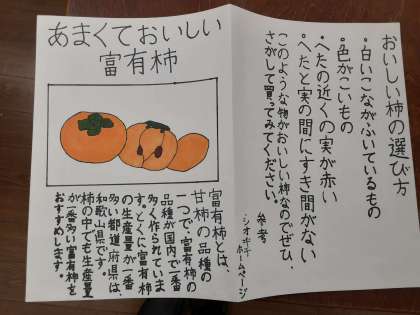 おいしい柿の選び方
・白いこながふいているもの
・色がこいもの
・へたの近くの実が赤い
・へたと実の間にすき間がない
このような物がおいしい柿なのでぜひ、
さがして買ってみてください。
参考
ホームページ
あまくておいしい
富有柿
富有柿とは、
甘柿の品種の
一つで、富有柿の
品種が国内で一番
多く作られていま
す。とくに、富有柿
の生産量が一番
多い都道府県は、
和歌山県です。
柿の中でも生産量
が一番多い富有柿を
おすすめします。